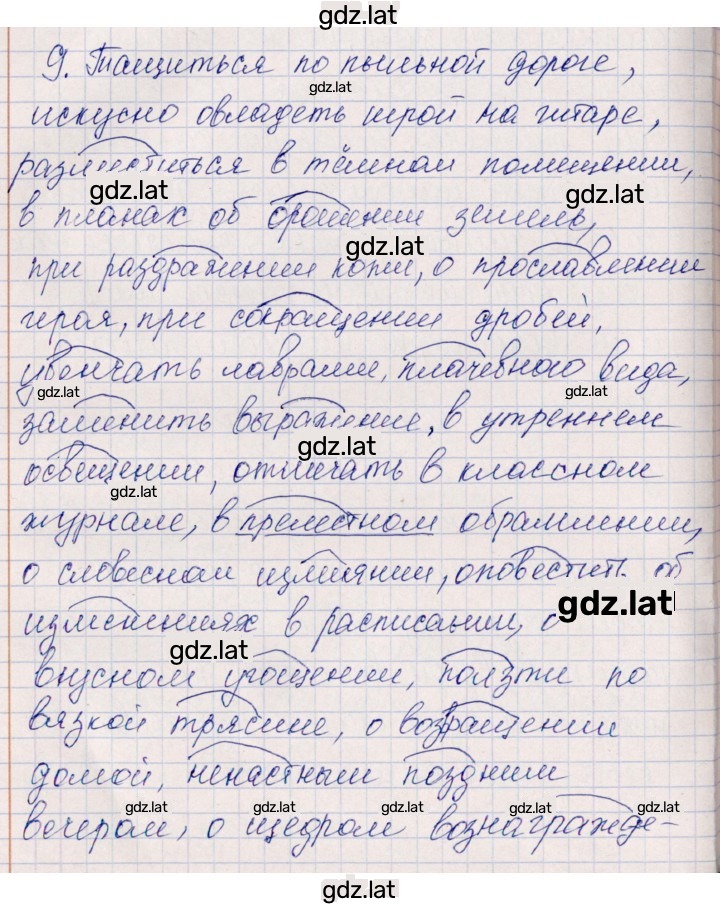 gdz.lat
9. Тащиться по пыльной дороге,
gdz.lat
искусно овладеть игрой на гитаре,
разместиться в тёмном помещении,
gdz.lat gdz.lat
в планах об орошении земель,
gdz.lat
при раздражении кожи, о прославлении
героя, при сокращении дробей,
увенчать лаврами, плачевного вида,
gdz.lat gdz.lat
заменить выражение, в утреннем
gdz.lat
освещении, отмечать в классном
gdz.lat
журнале, в прелестном обрамлении,
о словесном излиянии, оповестит. об
gdz.lat
изменениях в расписании, о
gdz.lat
вкусном угощении, ползти по
вязкой трясине, о возращении
домой, ненастным поздним
gdz.lat gdz.lat gdz.lat gdz.lat gdz.lat
вечером, о щедром вознагражде-
gdz.lat